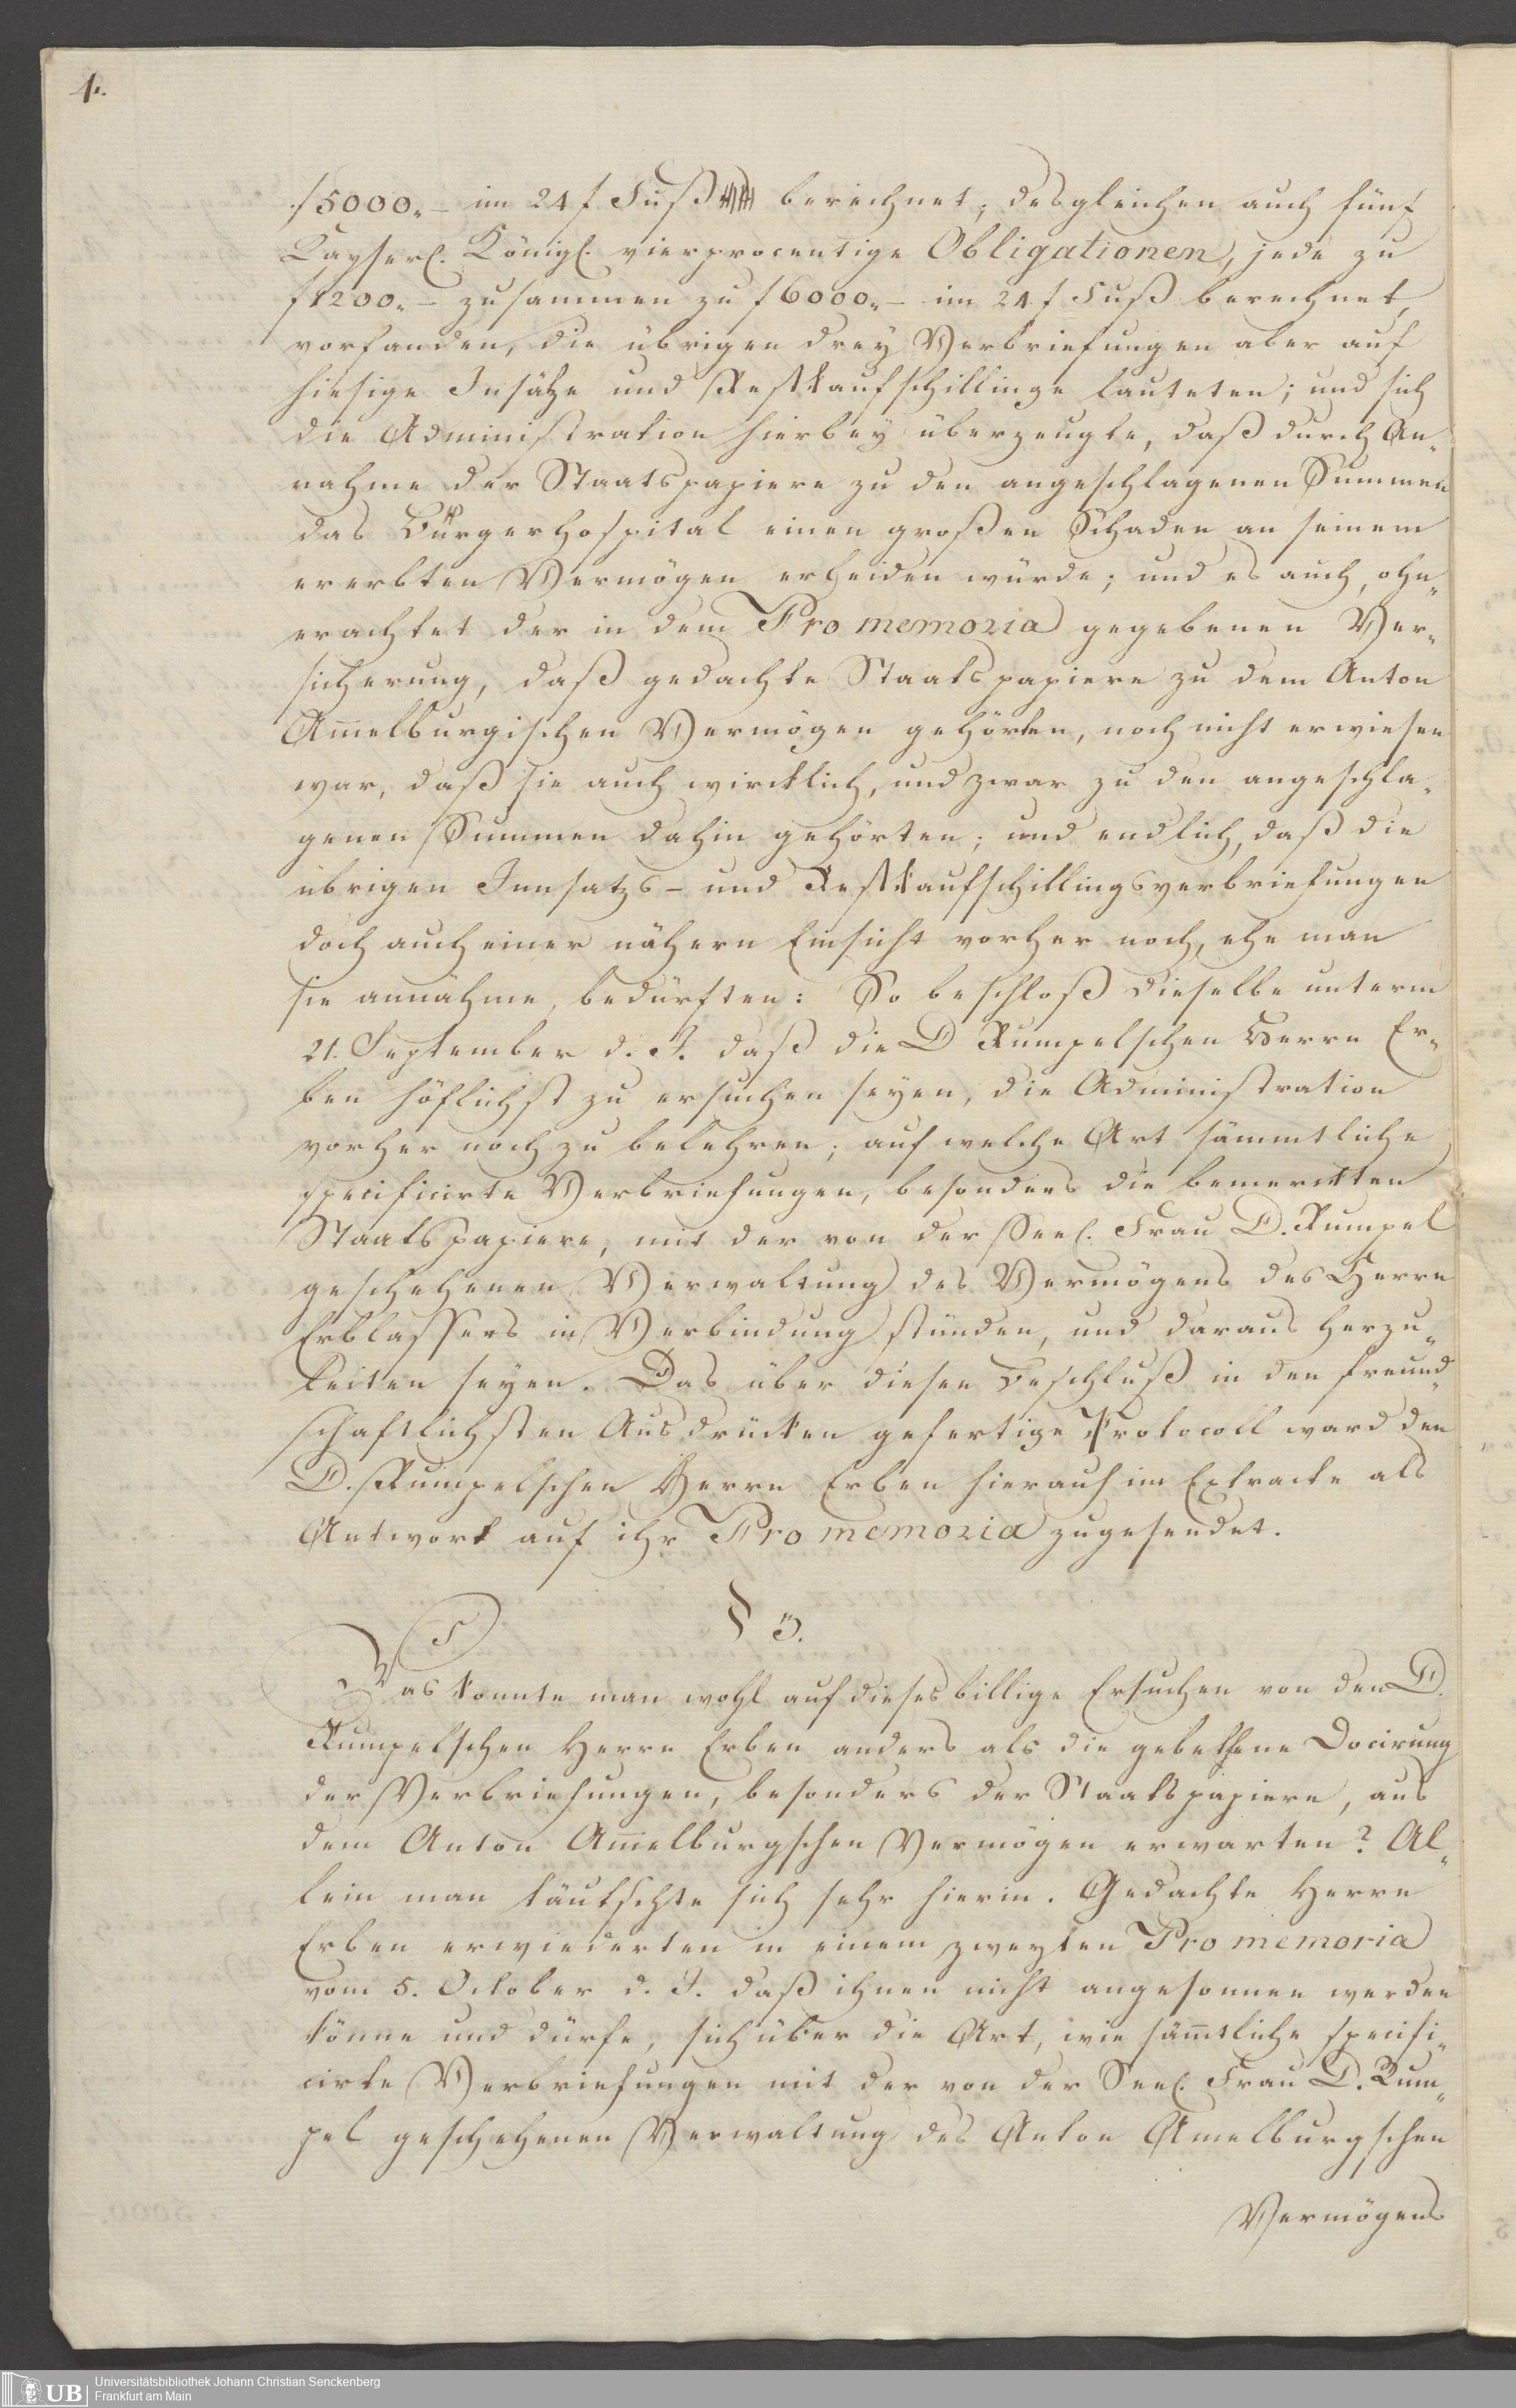 4.
f5000.- im 24 f Fuß berechnet, desgleichen auch fünf
Kayserl. Königl. vierprocentige Obligationen, jede zu
f1200.- zusammen zu f6000.- im 24 f Fuß berechnet,
vorfanden, die übrigen drey Verbriefungen aber auf
hiesige Insätze und Restkaufschillinge lauteten; und sich
die Administration hierbey überzeugte, daß durch An„
nahme der Staatspapiere zu den angeschlagenen Summen
das Bürgerhospital einen großen Schaden an seinem
ererbten Vermögen erleiden würde; und es auch, ohn„
erachtet der in dem Pro memoria gegebenen Ver„
sicherung, daß gedachte Staatspapiere zu dem Anton
Am̅elburgischen Vermögen gehörten, noch nicht erwiesen
war, daß sie auch wircklich, und zwar zu den angeschla„
genen Summen dahin gehörten; und endlich, daß die
übrigen Innsatzs- und Restkaufschillingsverbriefungen
doch auch einer nähern Einsicht vorher noch, ehe man
sie annähme, bedürften: So beschloß dieselbe unterm
21. September d. J. daß die D Rumpelschen Herrn Er„
ben höflichst zu ersuchen seyen, die Administration
vorher noch zu belehren; auf welche Art sämmtliche
specificirte Verbriefungen, besonders die bemerckten
Staatspapiere, mit der von der Seel. Frau D. Rumpel
geschehenen Verwaltung des Vermögens des Herrn
Erblassers in Verbindung stünden, und daraus herzu„
leiten seyen. Das über diesen Beschluß in den freund„
schaftlichsten Ausdrücken gefertige Protocoll ward den
D. Rumpelschen Herrn Erben hierauf im Extracte als
Antwort auf ihr Pro memoria zugesendet.
§ 5.
Was konnte man wohl auf dieses billige Ersuchen von den D.
Rumpelschen Herrn Erben anders als die gebethene Docirung
der Verbriefungen, besonders der Staatspapiere, aus
dem Anton Am̅elburgschen Vermögen erwarten? Al„
lein man täuschte sich sehr hierin. Gedachte Herrn
Erben erwiederten in einem zweyten Pro memoria
vom 5. October d. J. daß ihnen nicht angesonnen werden
könne und dürfe, sich über die Art, wie säm̅tliche specifi„
cirte Verbriefungen mit der von der Seel. Frau D. Rum„
pel geschehenen Verwaltung des Anton Amelburgschen
Vermögens
UB Universitätsbibliothek Johann Christian Senckenberg
Frankfurt am Main